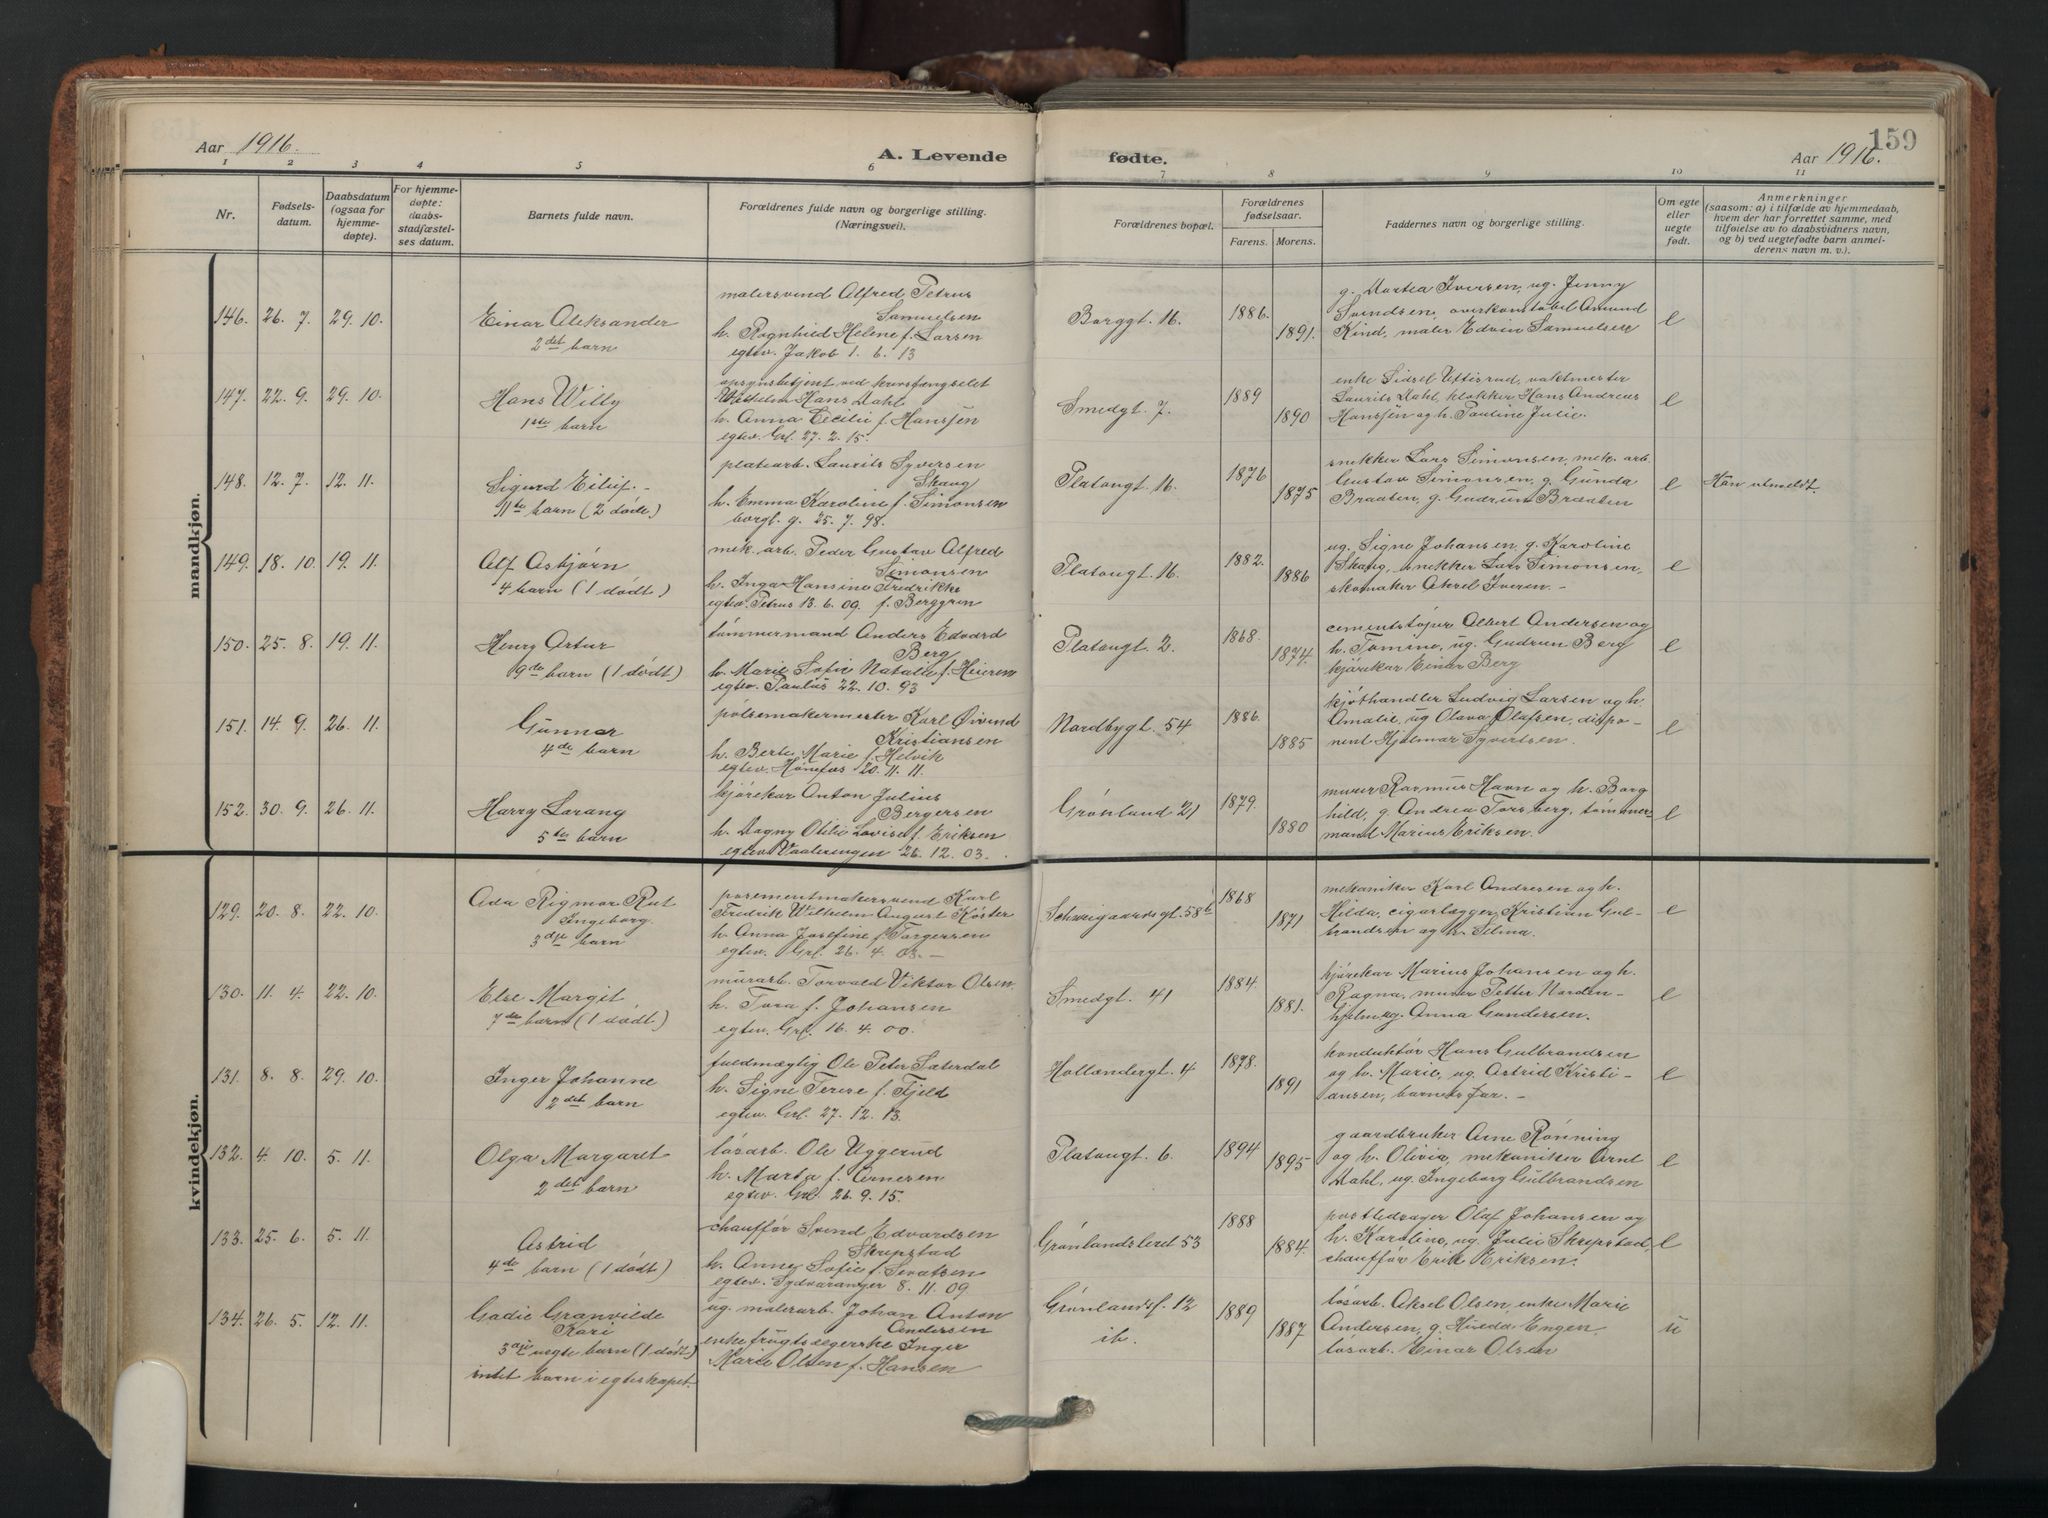 Aar 1916.
A. Levende fødte.
Aar 1916.
159
1 2 3 4 5 6 7 8 9 10 11
Nr.
Fødsels-
datum.
Daabsdatum
(ogsaa for
hjemme-
døpte).
For hjemme-
døpte:
daabs-
stadfæstel-
ses datum.
Barnets fulde navn.
Forældrenes fulde navn og borgerlige stilling.
(Næringsvei).
Forældrenes bopæl.
Forældrenes
fødselsaar.
Farens. Morens.
Faddernes navn og borgerlige stilling.
Om egte
eller
uegte
født.
Anmerkninger
(saasom: a) i tilfælde av hjemmedaab,
hvem der har forrettet samme, med
tilføielse av to daabsvidners navn,
og b) ved uegtefødte barn anmel-
derens navn m. v.).
mandkjøn.
146. 26. 7. 29. 10.
Einar Aleksander
2det barn
malersvend Alfred Petrus
Samuelsen
h. Ragnhild Helene f. Larsen
egtev. Jakob 1. 6. 13
Borggt. 16.
1886.
1891.
g. Martea Iversen, ug. Jenny
Svendsen, overkonstabel Amund
Kind, maler Edvin Samuelsen
e
147. 22. 9. 29. 10.
Hans Willy
1ste barn
opsynsbetjent ved kredsfængselet
Vilhelm Hans Dahl
h. Anna Cecilie f. Hanssen
egtev. Grl. 27. 2. 15.
Smedgt. 7.
1889
1890
enke Sidsel Uttisrud, vaktmester
Laurits Dahl, klokker Hans Andreas
Hanssen og h. Pauline Julie.
e
148. 12. 7. 12. 11.
Sigurd Eiluf.
11te barn (2 døde)
platearb. Laurits Syversen
Skaug
h. Emma Karoline f. Simonsen
borgl. g. 25. 7. 98.
Platougt 16.
1876
1875
snekker Lars Simonsen, mek. arb.
Gustav Simonsen, g. Gunda
Braaten, g. Gudrun Braaten
e
Han utmeldt.
149. 18. 10. 19. 11.
Alf Asbjørn
4 barn (1 dødt)
mek. arb. Peder Gustav Alfred
Simonsen
h. Inga Hansine Fredrikke
egtev. Petrus 13. 6. 09. f. Berggren
Platougt 16.
1882.
1886
ug. Signe Johansen, g. Karoline
Skaug, snekker Lars Simonsen,
skomaker Aksel Iversen. -
e
150. 25. 8. 19. 11.
Henry Artur
9de barn (1 dødt)
tømmermand Anders Edvard
Berg
h. Marie Sofie Natalie f. Heieren
egtev. Paulus 22. 10. 93
Platougt 2.
1868.
1874.
cementstøper Albert Andersen og
h. Tomine, ug. Gudrun Berg
kjørekar Einar Berg
e
151. 14. 9. 26. 11.
Gunnar
4de barn
pølsemakermester Karl Øivind
Kristiansen
h. Berte Marie f. Helvik
egtev. Hønefos 20. 11. 11.
Nordbygt. 54
1886.
1885
kjøthandler Ludvig Larsen og h.
Amalie, ug Olava Olafsen, dispo-
nent Hjalmar Syvertsen.
e
152. 30. 9. 26. 11.
Harry Lorang
5te barn
kjørekar Anton Julius
Bergersen
h. Dagny Otilie Lovise f. Eriksen
egtev. Vaalerengen 26. 12. 03.
Grønland 21
1879.
1880
murer Rasmus Havn og h. Borg
hild, g. Andrea Torsberg, tømmer
mand Marius Eriksen.
e
kvindekjøn.
129. 20. 8. 22. 10.
Ada Rigmor Rut
Ingeborg.
3dje barn
posementmakersvend Karl
Fredrik Wilhelm August Köster
h. Anna Josefine f. Torgersen
egtev. Grl. 26. 4. 03. -
Schweigaardsgt. 58b
1868
1871
mekaniker Karl Andresen og h.
Hilda, cigarlægger Kristian Gul-
brandsen og h. Selma.
e
130. 11. 4. 22. 10.
Else Margit
7de barn (1 dødt.)
murarb. Torvald Viktor Olsen.
h. Tora f. Johansen
egtev. Grl. 16. 4. 00.
Smedgt. 41
1884.
1881.
kjørekar Marius Johansen og h.
Ragna, murer Petter Norden-
hjelm, ug. Anna Gundersen.
e
131. 8. 8. 29. 10.
Inger Johanne
2det barn
fuldmægtig Ole Peter Sæterdal
h. Signe Terese f. Fjeld
egtev. Grl. 27. 12. 13.
Hollændergt. 4
1878.
1891
konduktør Hans Gulbrandsen
og h. Marie, ug. Astrid Kristi-
ansen, barnets far. -
e
132. 4. 10. 5. 11.
Olga Margaret
2det barn
løsarb. Ole Uggerud
h. Marta f. Arnesen
egtev. Grl. 26. 9. 15.
Platougt. 6.
1894
1895
gaardbruker Arne Rønning
og h. Olivia, mekaniker Arnt
Dahl, ug. Ingeborg Gulbrandsen
e
133. 25. 6. 5. 11.
Astrid
4de barn (1 dødt)
chauffør Svend Edvardsen
Skrepstad
h. Anne Sofie f. Sevatsen
egtev. Sydvaranger 8. 11. 09
Grønlandsleret 53
1888
1884.
postbedrager Olaf Johansen og
h. Karoline, ug. Julie Skrepstad,
chauffør Erik Eriksen.
e
134. 26. 5. 12. 11.
Godie Granvilde
Kari
3dje uegte barn (1 dødt)
intet barn i egteskapet.
ug. malerarb. Johan Anton
Andersen
enke frugtsælgerske Inger
Marie Olsen f. Hansen
Grønlandsl. 12
ib.
1889
1887
løsarb. Aksel Olsen, enke Marie
Andersen, g. Hilda Engen
løsarb. Einar Olsen
u